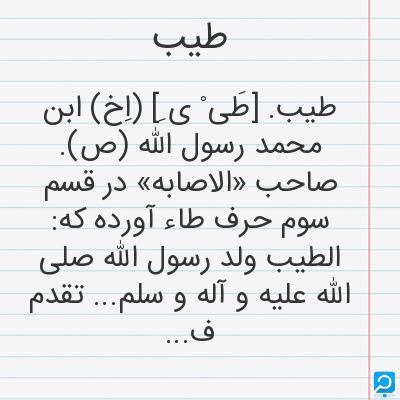 طیب
طیب. [طَی ْ ی ِ] (اِخ) ابن
محمد رسول اللّه (ص).
صاحب «الاصابه» در قسم
سوم حرف طاء آورده که:
الطیب ولد رسول اللّه صلی
اللّه علیه و آله و سلم... تقدم
ف...